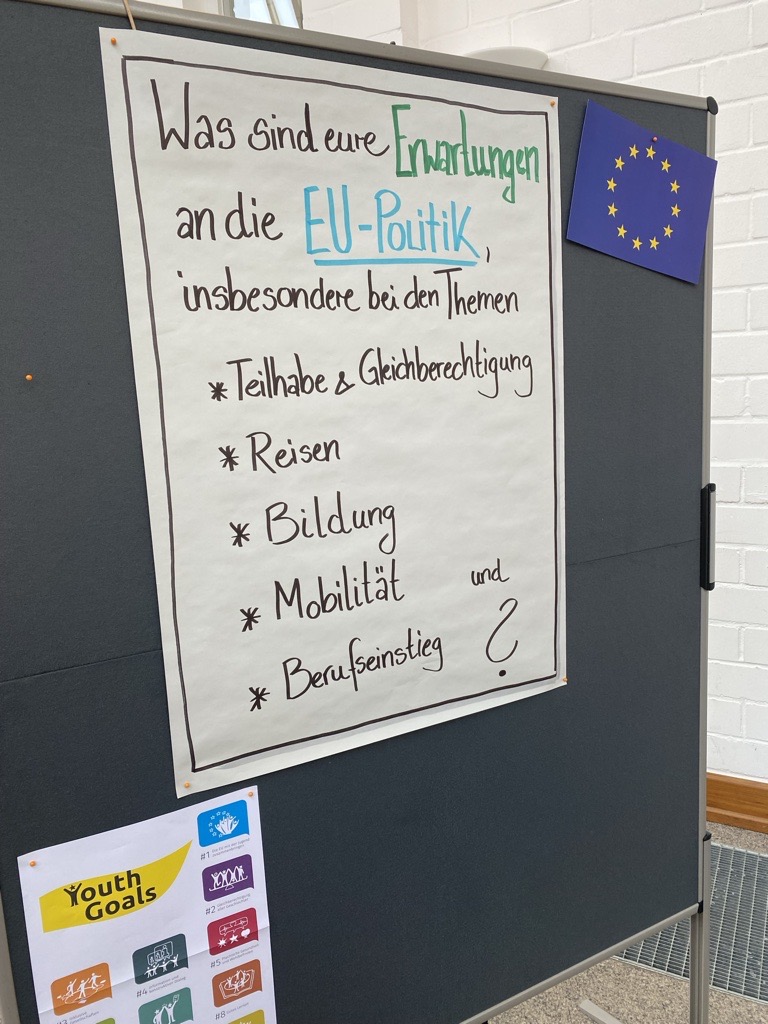 Was sind eure Erwartungen
an die EU-Politik,
insbesondere bei den Themen
* Teilhabe & Gleichberechtigung
* Reisen
* Bildung
* Mobilität
und
* Berufseinstieg ?
Youth
Goals
#1
#2
#5
#4
#3
#8